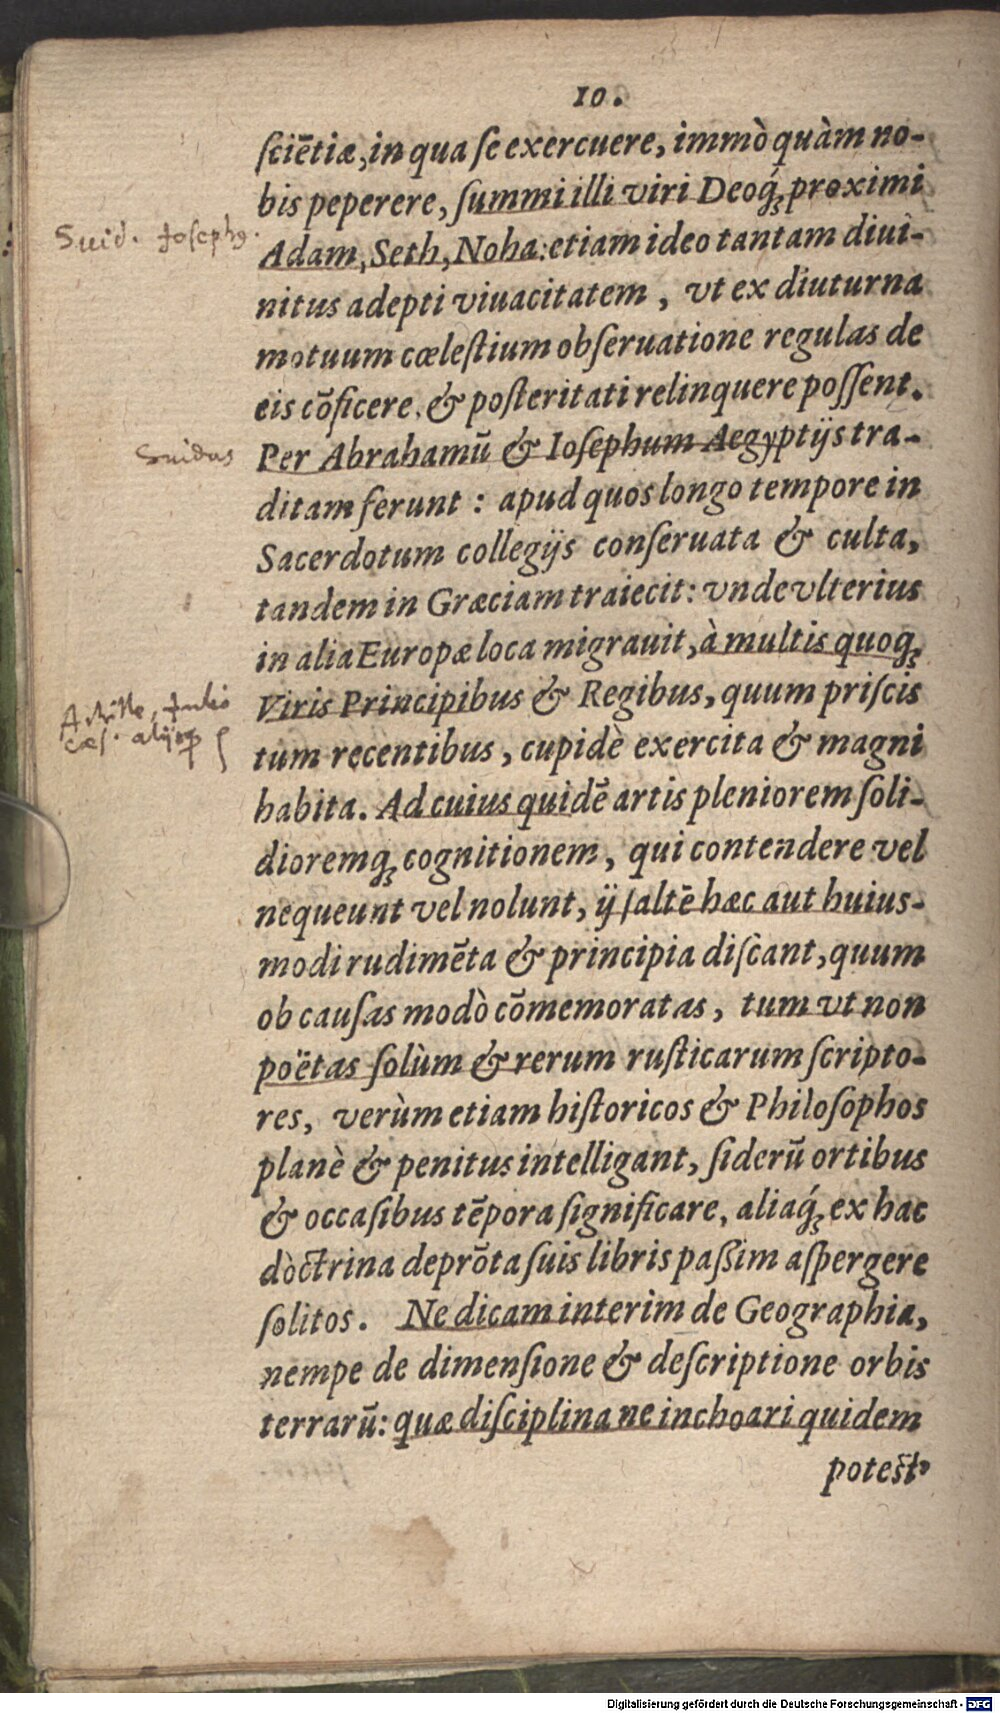 10.
ſciētiæ, in qua ſe exercuere, immò quàm no-
bis peperere, ſummi illi viri Deoq́ꝫ proximi
Suid. Iosephꝯ.
Adam, Seth, Noha: etiam ideo tantam diui-
nitus adepti viuacitatem, vt ex diuturna
motuum cœleſtium obſeruatione regulas de
eis cōficere, & poſteritati relinquere poſſent.
Suidas
Per Abrahamū & Ioſephum Aegyptijs tra-
ditam ferunt: apud quos longo tempore in
Sacerdotum collegijs conſeruata & culta,
tandem in Græciam traiecit: vnde vlterius
in alia Europæ loca migrauit, à multis quoqꝫ
Viris Principibus & Regibus, quum priſcis
Achille, Iulio
cæs. alijsqꝫ
tum recentibus, cupidè exercita & magni
habita. Ad cuius quidē artis pleniorem ſoli-
dioremqꝫ cognitionem, qui contendere vel
nequeunt vel nolunt, ij ſaltē hæc aut huius-
modi rudimēta & principia diſcant, quum
ob cauſas modò cōmemoratas, tum vt non
poëtas ſolùm & rerum ruſticarum ſcripto-
res, verùm etiam hiſtoricos & Philoſophos
planè & penitus intelligant, ſiderū ortibus
& occaſibus tēpora ſignificare, aliaq́ꝫ ex hac
doctrina deprōta ſuis libris paßim aſpergere
ſolitos. Ne dicam interim de Geographia,
nempe de dimenſione & deſcriptione orbis
terrarū: quæ diſciplina ne inchoari quidem
poteſt
Digitalisierung gefördert durch die Deutsche Forschungsgemeinschaft - DFG